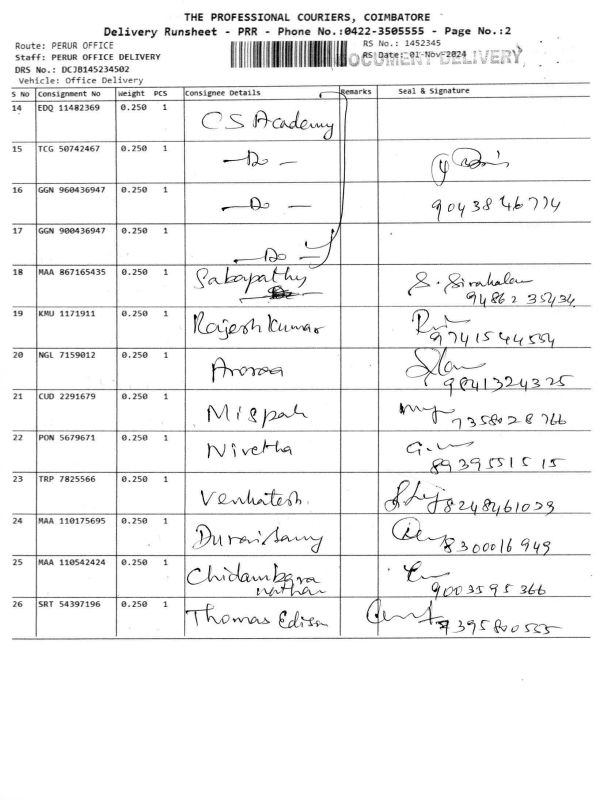 THE PROFESSIONAL COURIERS, COIMBATORE
Delivery Runsheet - PRR - Phone No.:0422-3505555 - Page No.:2
Route: PERUR OFFICE
RS No.: 1452345
Staff: PERUR OFFICE DELIVERY
RS Date: 01-Nov-2024
DOCUMENT DELIVERY
DRS No.: DCJB145234502
Vehicle: Office Delivery
S No Consignment No Weight PCS Consignee Details Remarks Seal & Signature
14 EDQ 11482369 0.250 1 CS Academy
15 TCG 50742467 0.250 1 — Do —
16 GGN 960436947 0.250 1 — Do — 9043846774
17 GGN 900436947 0.250 1 — Do —
18 MAA 867165435 0.250 1 Sabapathy 94862 35434
19 KMU 1171911 0.250 1 Rajesh Kumar 9741544554
20 NGL 7159012 0.250 1 9841324325
21 CUD 2291679 0.250 1 Mispah 7358028766
22 PON 5679671 0.250 1 Nivetha 8939551515
23 TRP 7825566 0.250 1 Venkatesh. 8248461029
24 MAA 110175695 0.250 1 Duraisamy 8300016949
25 MAA 110542424 0.250 1 Chidambara nathan 9003595366
26 SRT 54397196 0.250 1 Thomas Edison 9395800555